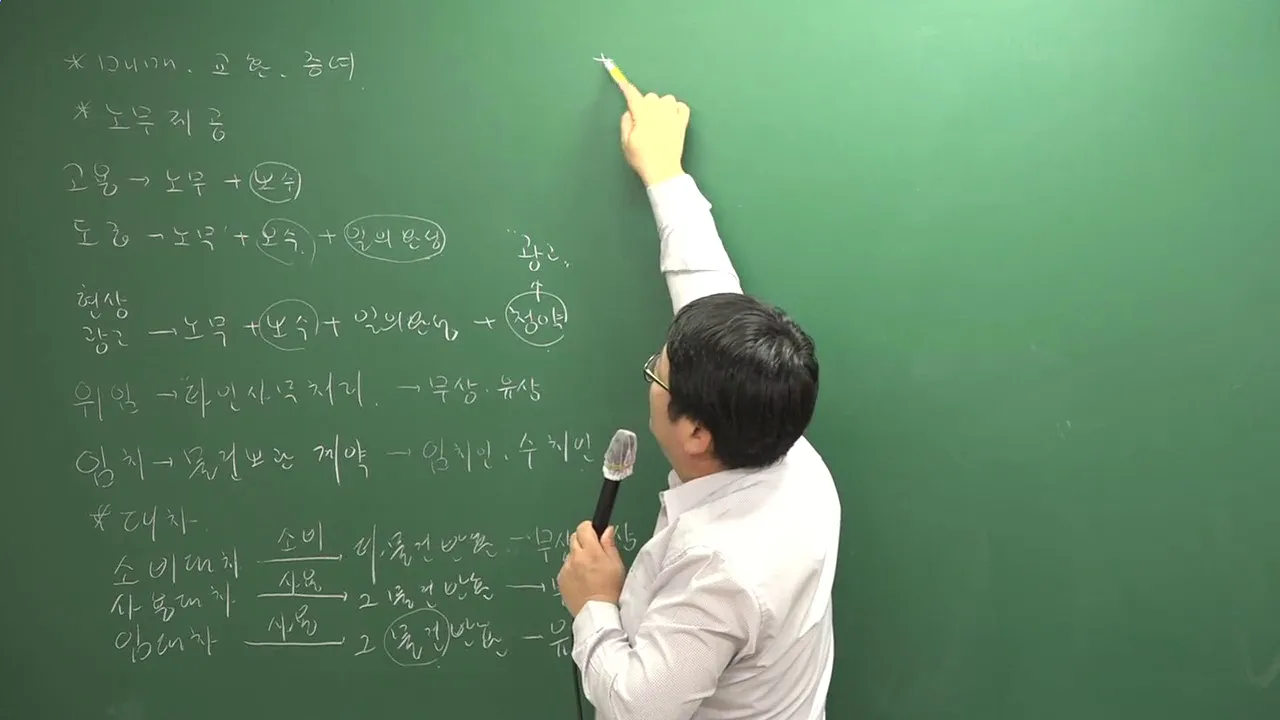 * 매매. 교환. 증여
* 노무제공
고용 → 노무 + 보수
도급 → 노무 + 보수 + 일의 완성
광고
현상
광고 → 노무 + 보수 + 일의 완성 + 청약
위임 → 타인사무처리 → 무상. 유상
임치 → 물건보관 계약 → 임치인. 수치인
* 대차
소비대차 소비 물건 반환 → 무상
사용대차 사용 그 물건 반환 →
임대차 사용 그 물건 반환 → 유